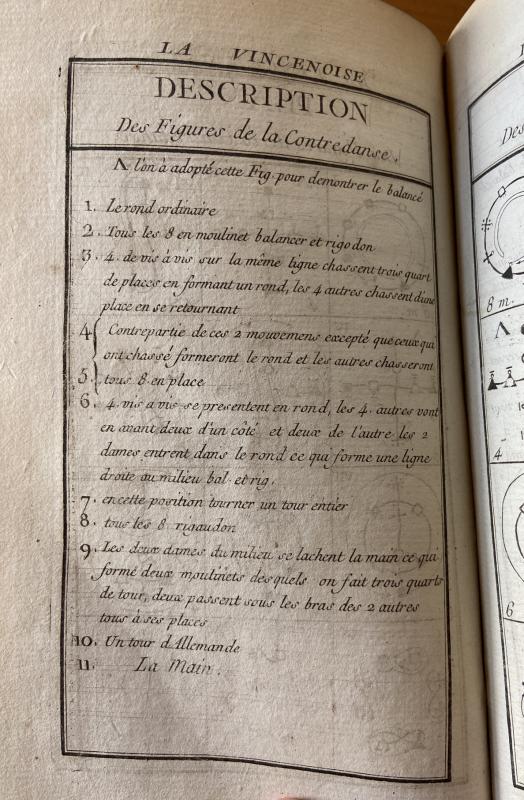 LA VINCENOISE
DESCRIPTION
Des Figures de la Contredanse.
Λ l'on à adopté cette Fig. pour demontrer le balancé
1. Le rond ordinaire
2. Tous les 8 en moulinet balancer et rigodon
3. 4. de vis a vis sur la même ligne chassent trois quart
de places en formant un rond, les 4 autres chassent d'une
place en se retournant
4. Contrepartie de ces 2 mouvemens excepté que ceux qui
ont chassé formeront le rond et les autres chasseront
5. tous 8 en place
6. 4. vis a vis se presentent en rond, les 4. autres vont
en avant deux d'un côté et deux de l'autre les 2
dames entrent dans le rond ce qui forme une ligne
droite au milieu bal. et rig.
7. en cette position tourner un tour entier
8. tous les 8 rigaudon
9. Les deux dames du milieu se lachent la main ce qui
formé deux moulinets desquels on fait trois quarts
de tour, deux passent sous les bras des 2 autres
tous à ses places
10. Un tour d'Allemande
11. La Main.
Des
8 m.
Λ
4
6